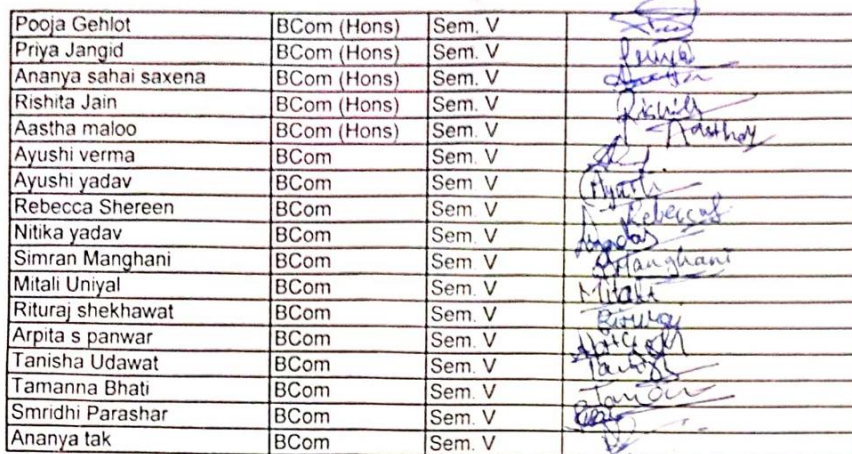 Pooja Gehlot BCom (Hons) Sem. V
Priya Jangid BCom (Hons) Sem. V Priya
Ananya sahai saxena BCom (Hons) Sem. V
Rishita Jain BCom (Hons) Sem. V
Aastha maloo BCom (Hons) Sem. V
Ayushi verma BCom Sem. V
Ayushi yadav BCom Sem. V
Rebecca Shereen BCom Sem. V
Nitika yadav BCom Sem. V
Simran Manghani BCom Sem. V Manghani
Mitali Uniyal BCom Sem. V Mitali
Rituraj shekhawat BCom Sem. V
Arpita s panwar BCom Sem. V
Tanisha Udawat BCom Sem. V
Tamanna Bhati BCom Sem. V
Smridhi Parashar BCom Sem. V
Ananya tak BCom Sem. V